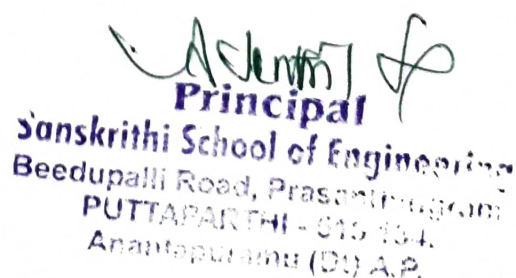 Principal
Sanskrithi School of Engineering
Beedupalli Road, Prasanthigram
PUTTAPARTHI - 515 134.
Anantapuramu (Dt) A.P.